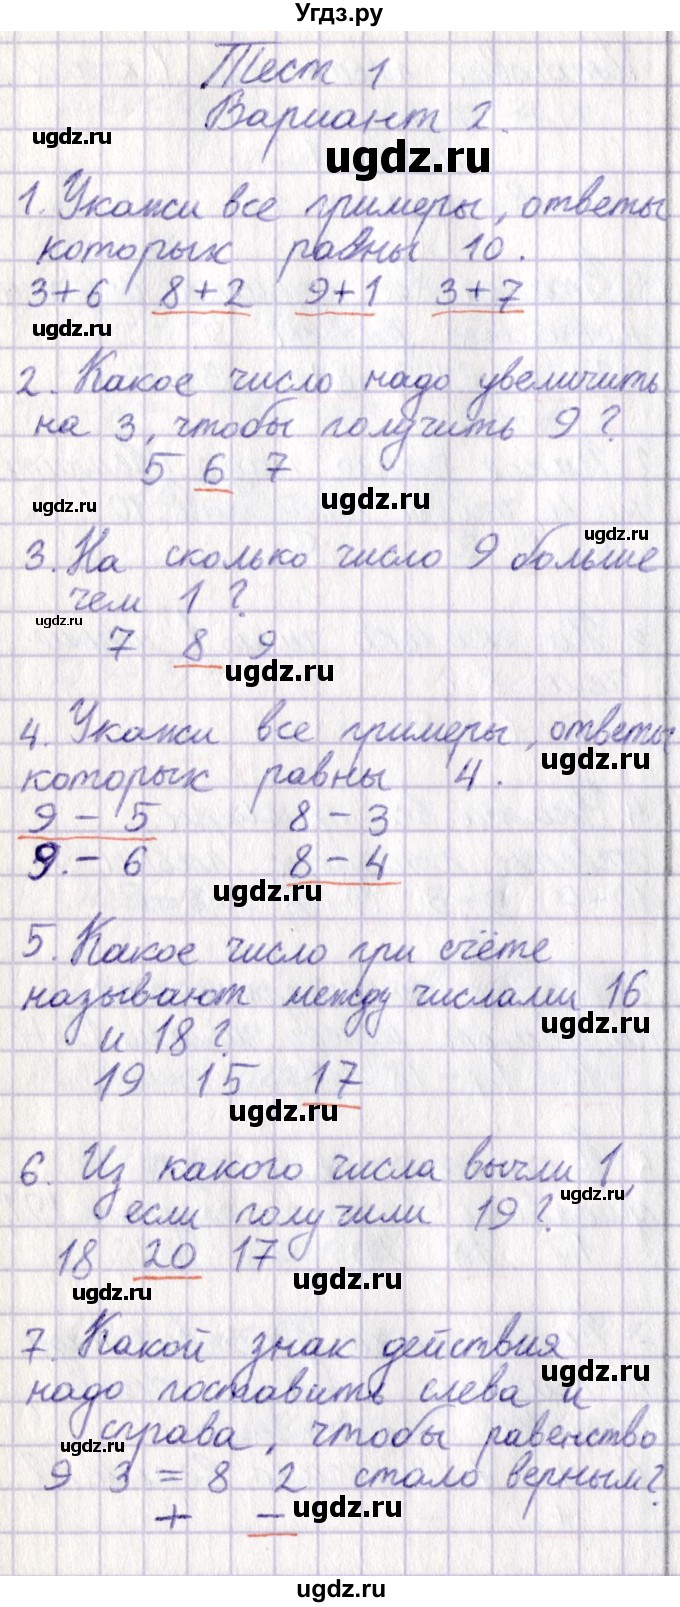 Угдз.ру
Тест 1
Вариант 2.
ugdz.ru
ugdz.ru
1. Укажи все примеры, ответы
которых равны 10.
3+6 8+2 9+1 3+7
ugdz.ru
2. Какое число надо увеличить
на 3, чтобы получить 9?
5 6 7
ugdz.ru
ugdz.ru
ugdz.ru
3. На сколько число 9 больше
чем 1?
ugdz.ru
7 8 9
ugdz.ru
4. Укажи все примеры, ответы
которых равны 4.
ugdz.ru
9 - 5 8 - 3
9. - 6 8 - 4
ugdz.ru
5. Какое число при счёте
называют между числами 16
и 18?
ugdz.ru
19 15 17
ugdz.ru
6. Из какого числа вычли 1,
ugdz.ru
если получили 19?
18 20 17
ugdz.ru
ugdz.ru
7. Какой знак действия
ugdz.ru
надо поставить слева и
справа, чтобы равенство
ugdz.ru
9 3 = 8 2 стало верным?
ugdz.ru
+ -
ugdz.ru